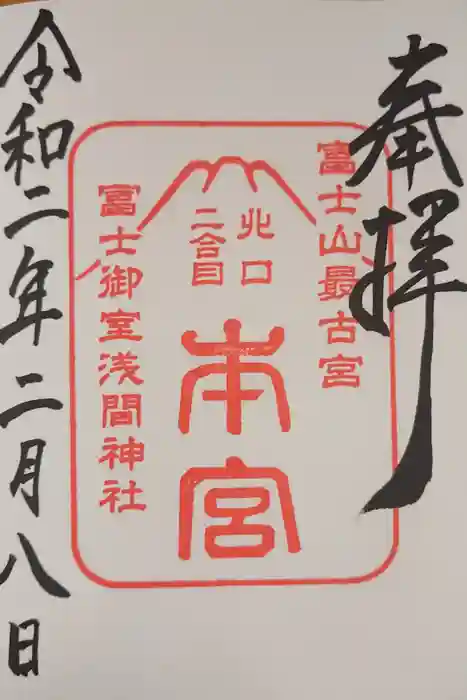 奉拝
富士山最古宮
北口
二合目
本宮
富士御室浅間神社
令和二年二月八日